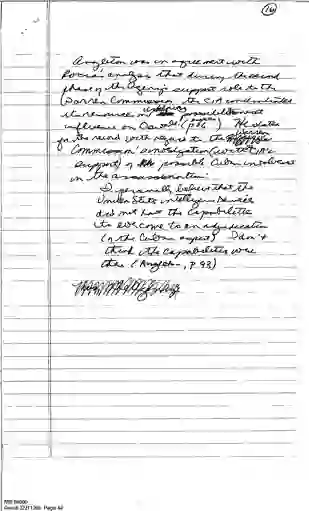 16
Angleton was in agreement with
Rocca's analysis that during the second
phase of the Agency's support role to the
Warren Commission, the CIA concentrated
its resources on possible
influence on Oswald (p86) He states
for the record with regard to the Warren
Commission investigation (with CIA
support) of the possible Cuban involvement
in the assassination:
I personally believe that the
United States intelligence services
did not have the capabilities
to ever come to an adjudication
(of the Cuban aspect). I don't
think the capabilities were
there (Angleton, p 93)
Page 62